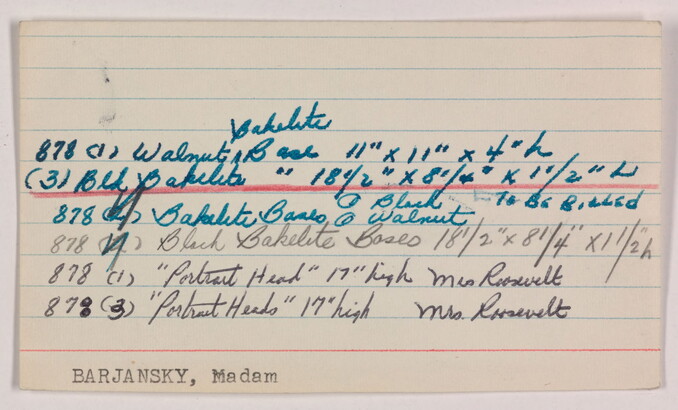 Bakelite
878 (1) Walnut, Base 11" x 11" x 4" h
(3) Blk Bakelite " 18 1/2" x 8 1/4" x 1 1/2" h
Black TO BE BILLED
878 Bakelite Bases Walnut
878 Black Bakelite Bases 18 1/2" x 8 1/4" x 1 1/2" h
878 (1) "Portrait Head" 17" high Mrs Roosevelt
878 (3) "Portrait Heads" 17" high Mrs. Roosevelt
BARJANSKY, Madam